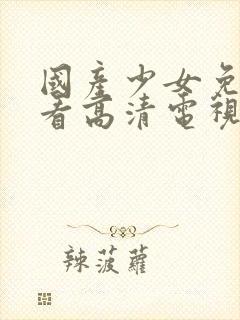 國產少女免
看高清電視
辣菠蘿